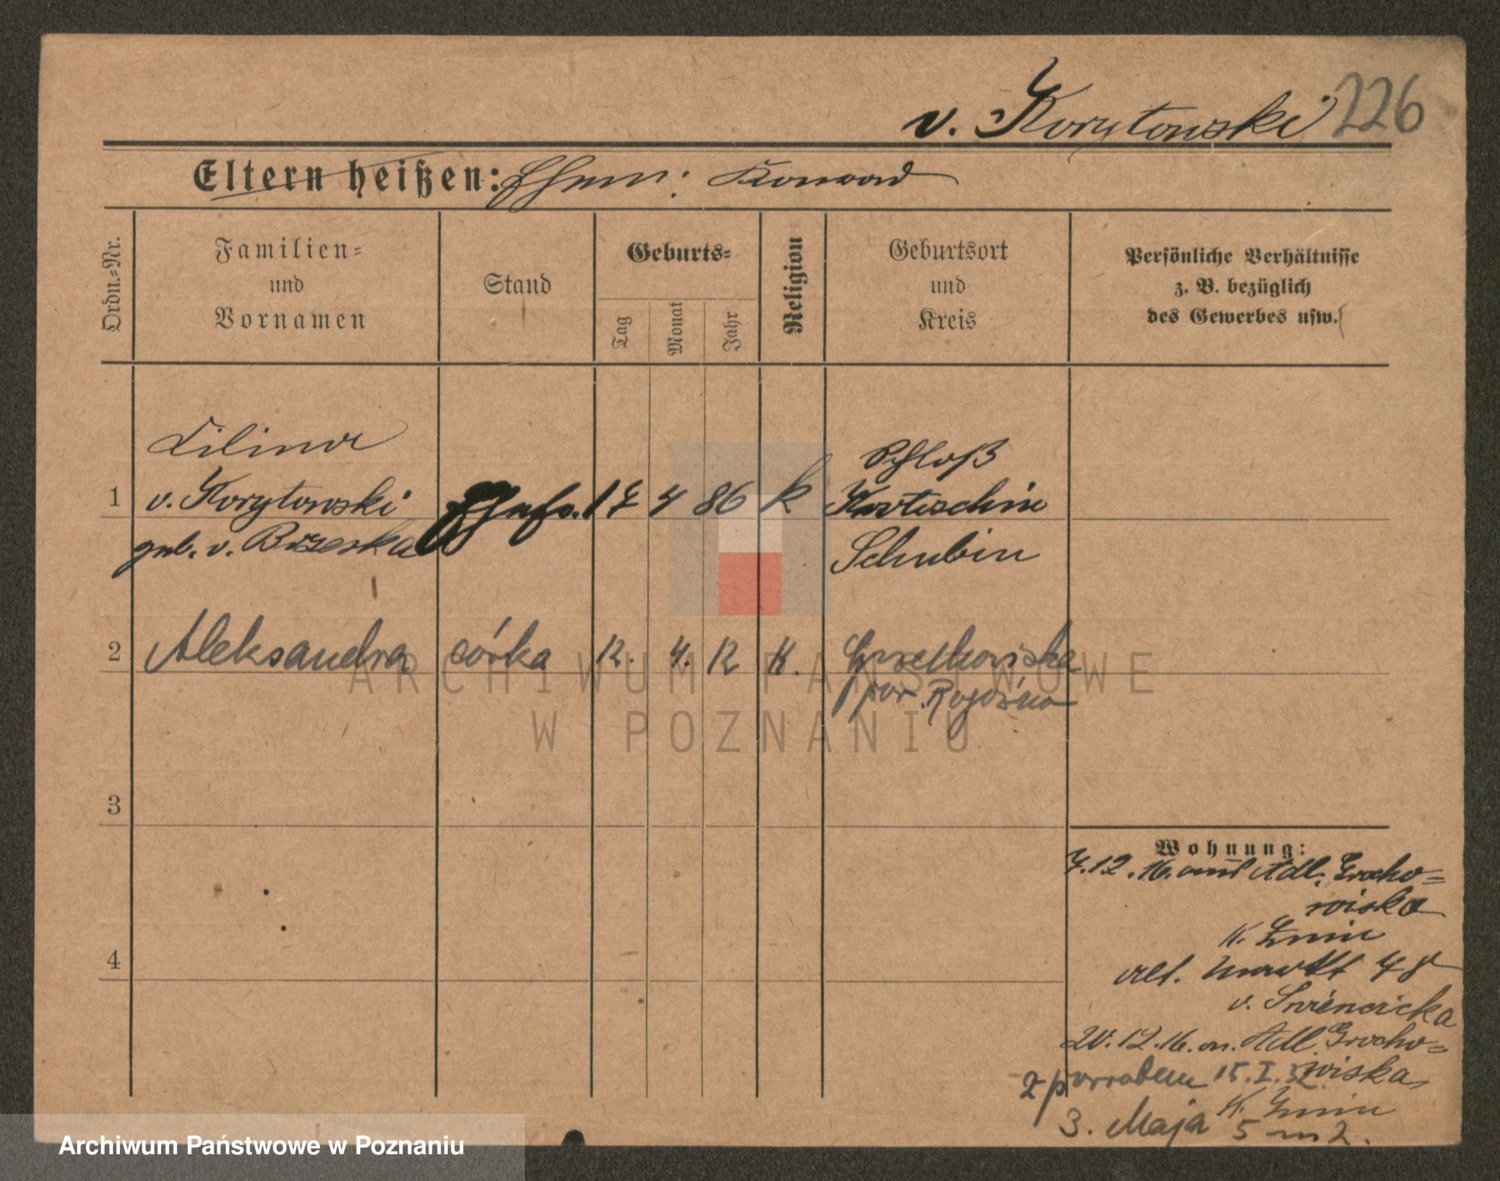 v. Korytowski 226
Eltern heißen: Ehem: Konrad
Ordn.=Nr.
Familien=
und
Vornamen
Stand
Geburts=
Tag
Monat
Jahr
Religion
Geburtsort
und
Kreis
Persönliche Verhältnisse
z. B. bezüglich
des Gewerbes usw.
1
v. Korytowski
geb. v. Brzeska
Ehefr. 17 4 86 k
Schloß
Schubin
2 Aleksandra córka 12. 4. 12 K.
pow.
3
4
Wohnung:
7.12.16. Adl. Grocho=
wiska
K. Znin
alt. Markt
20.12.16. Adl. Grocho=
wiska
K. Znin
15.I.
3. Maja 5 m 2.
ARCHIWUM PAŃSTWOWE
W POZNANIU
Archiwum Państwowe w Poznaniu